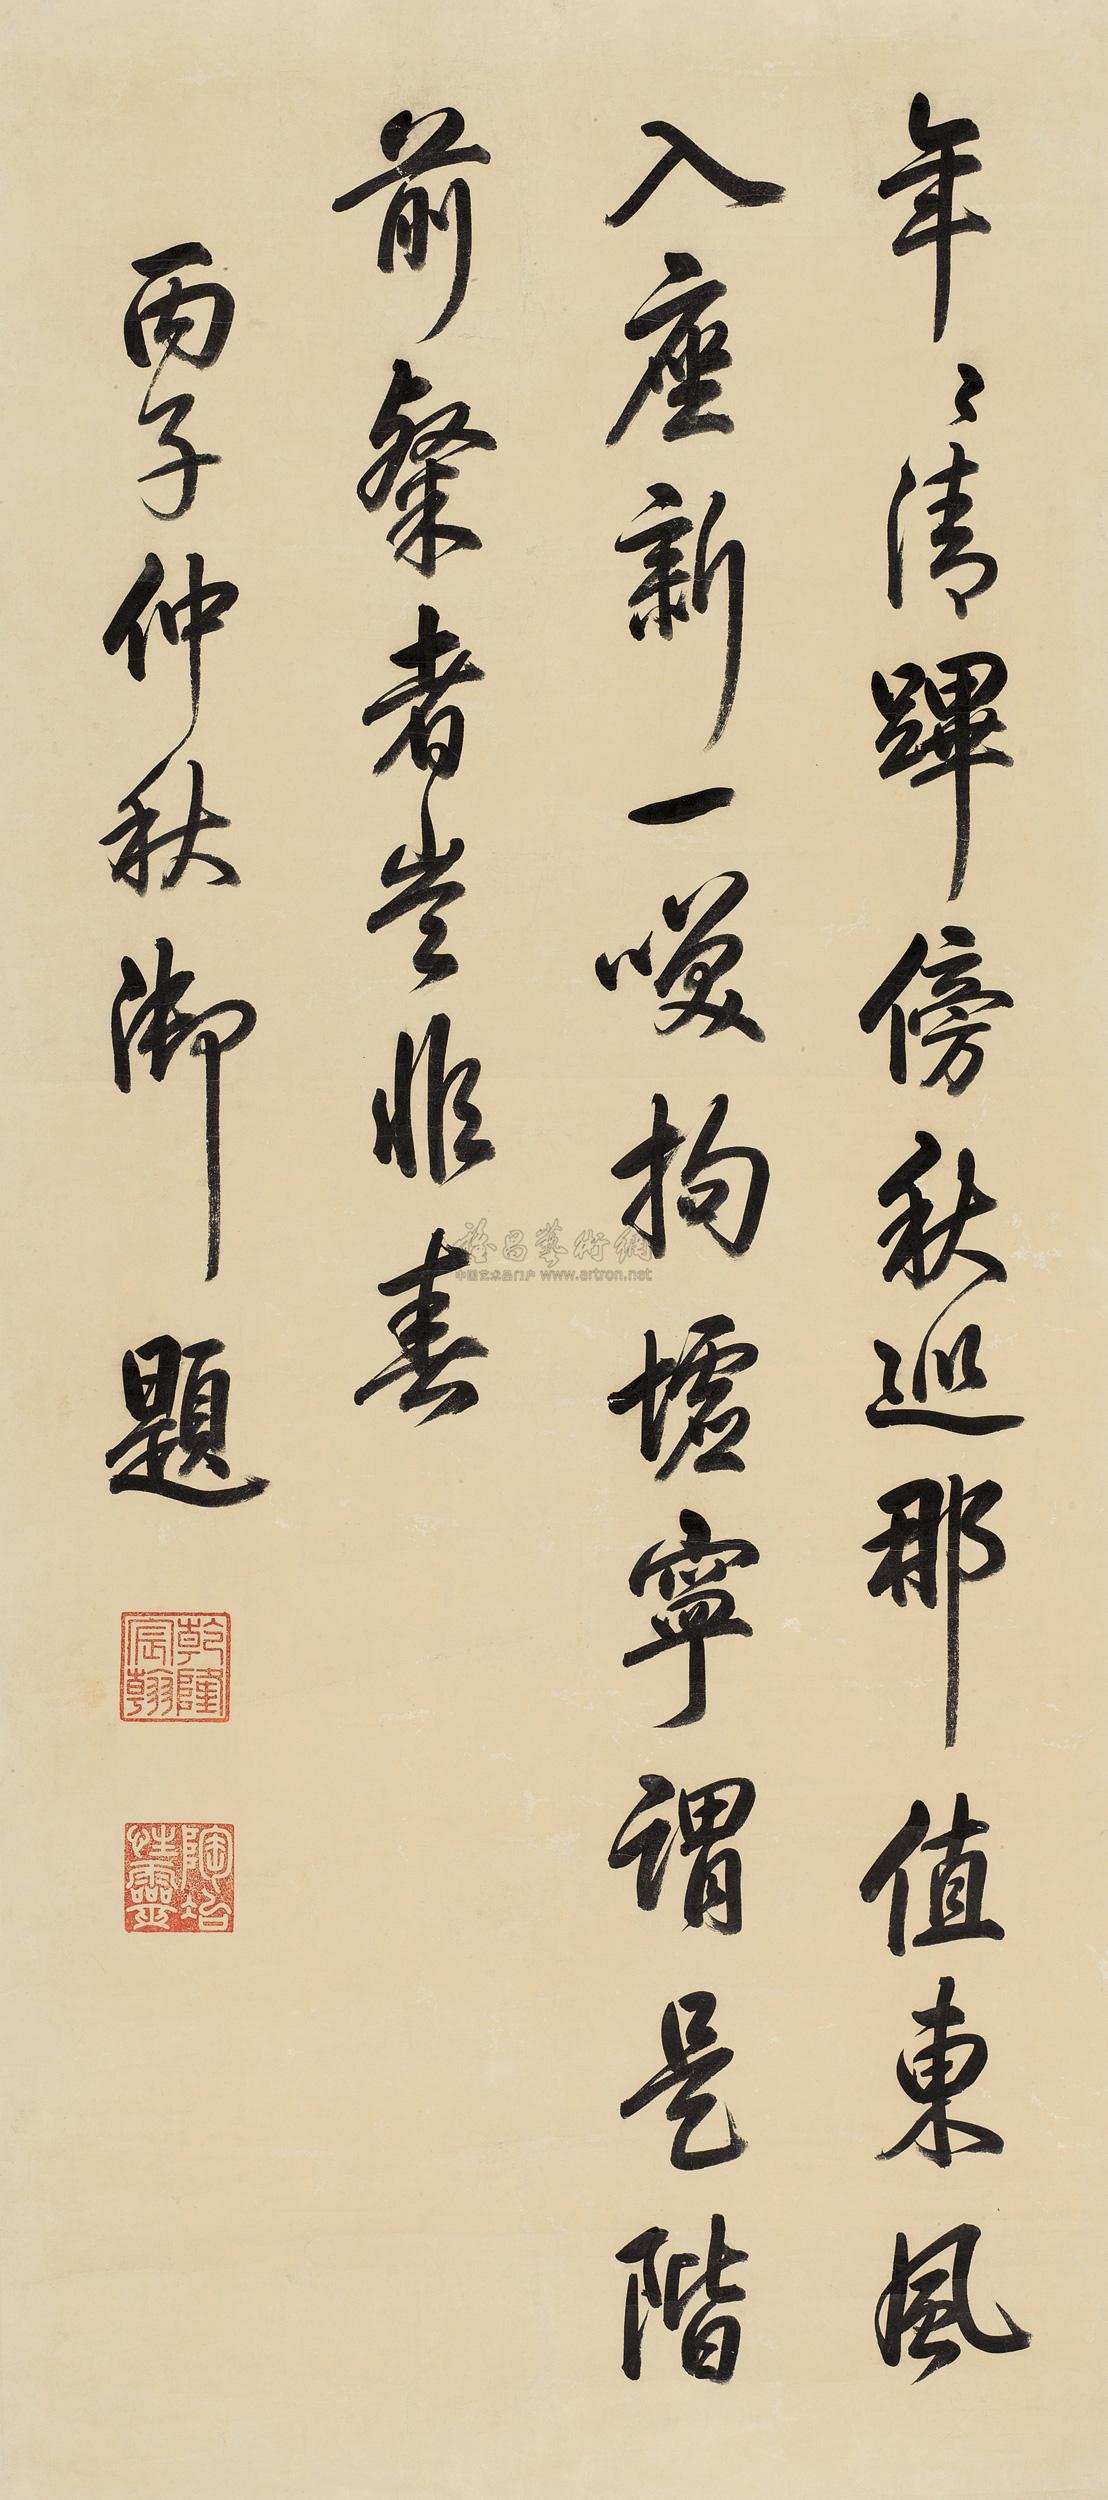 年〻清蹕傍秋巡那值東風
入座新一噗拘墟寧謂是階
前粲者豈非春
丙子仲秋御題
乾隆宸翰
陶冶性靈
雅昌藝術網
中国艺术品门户 www.artron.net